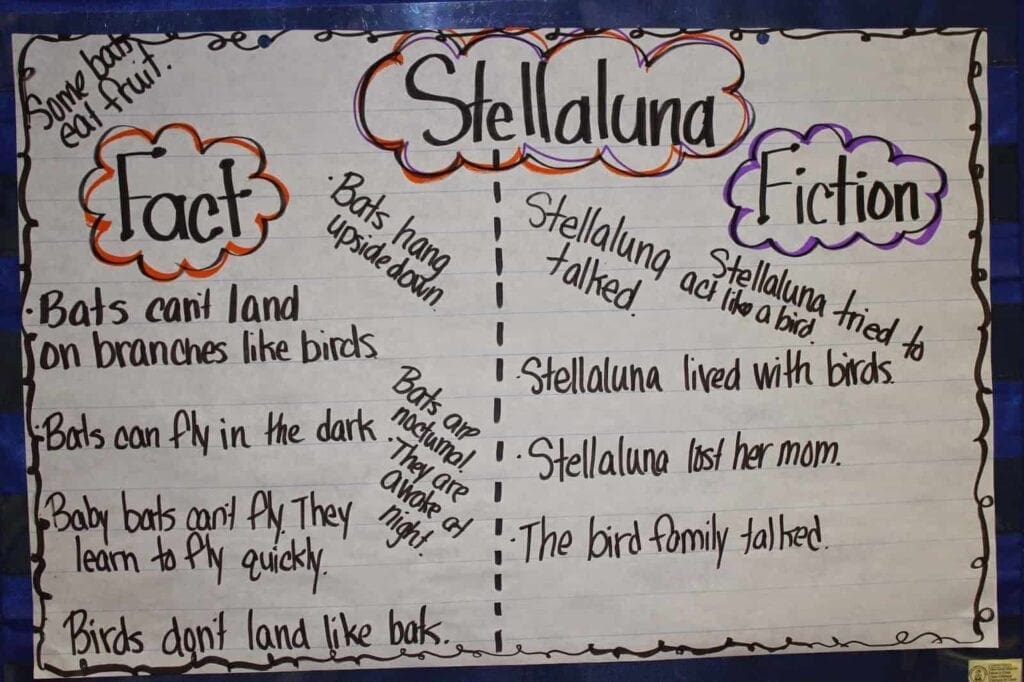 Stellaluna
Some bats
eat fruit.
Fact
· Bats hang
upside down.
· Bats can't land
on branches like birds
· Bats can fly in the dark.
· Bats are
nocturnal.
They are
awake at
night.
· Baby bats can't fly. They
learn to fly quickly.
Birds don't land like bats.
Fiction
Stellaluna
talked.
Stellaluna tried to
act like a bird.
· Stellaluna lived with birds.
· Stellaluna lost her mom.
· The bird family talked.